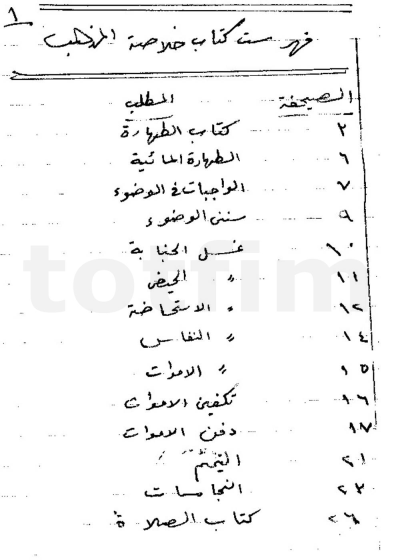 ١
فهرست كتاب خلاصة المذهب
الصحيفة المطلب
٢ كتاب الطهارة
٦ الطهارة المائية
٧ الواجبات في الوضوء
٩ سنن الوضوء
١٠ غسل الجنابة
١١ " الحيض
١٢ " الاستحاضة
١٤ " النفاس
١٥ " الاموات
١٦ تكفين الاموات
١٧ دفن الاموات
٢١ التيمم
٢٣ النجاسات
٢٦ كتاب الصلاة
totfim